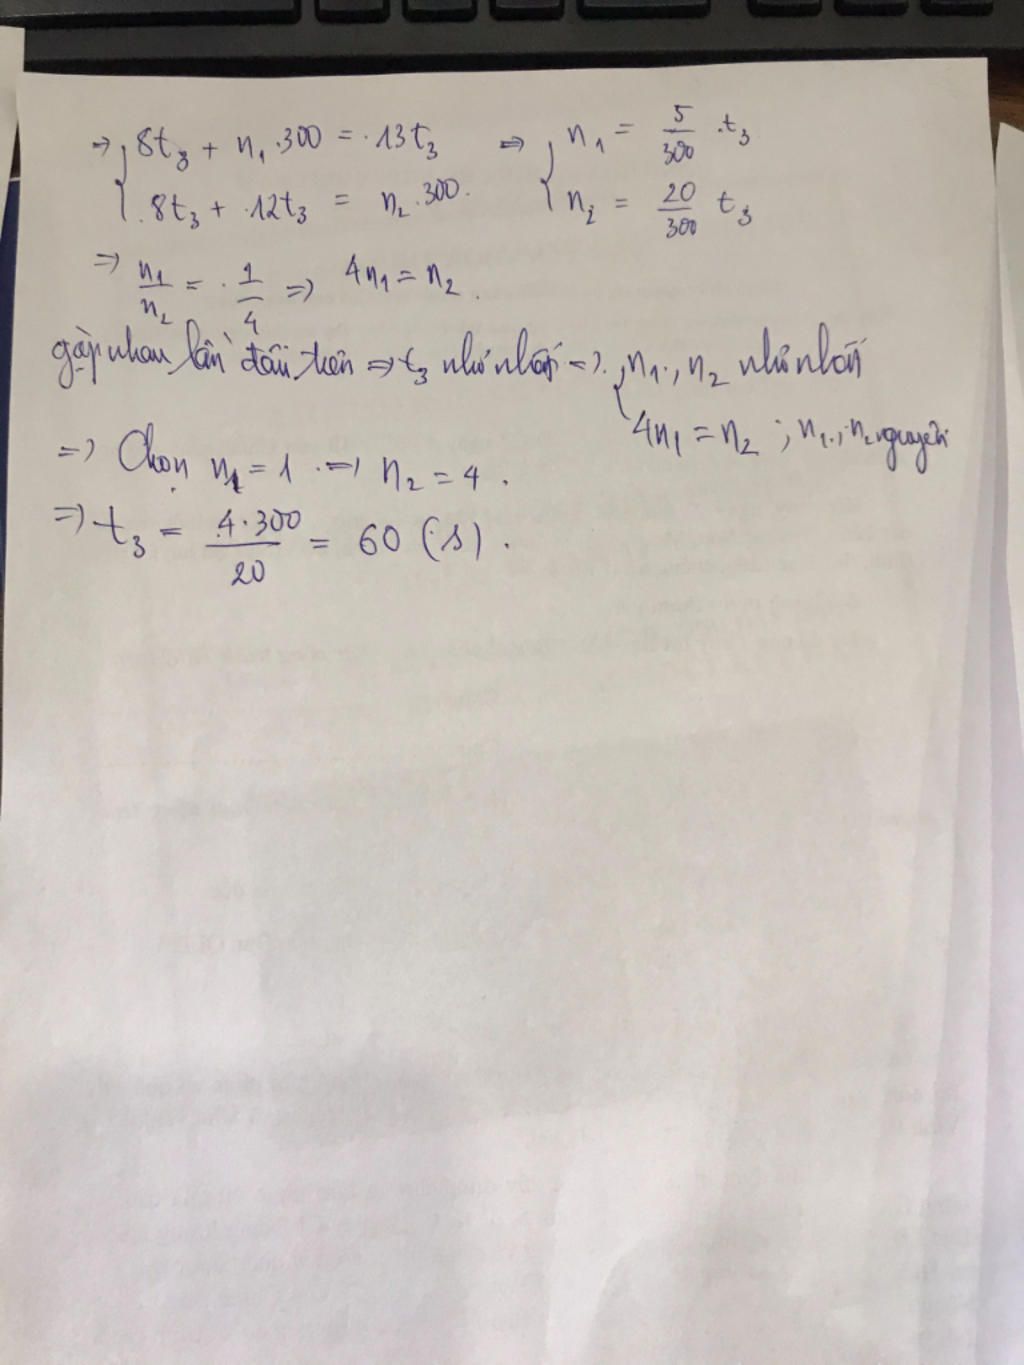 ⇒ { 8t₃ + n₁.300 = 13t₃ ⇒ { n₁ = 5/300 .t₃
8t₃ + 12t₃ = n₂.300. n₂ = 20/300 t₃
⇒ n₁/n₂ = 1/4 ⇒ 4n₁ = n₂.
gặp nhau lần đầu tiên ⇒ t₃ nhỏ nhất ⇒ { n₁, n₂ nhỏ nhất
4n₁ = n₂ ; n₁, n₂ nguyên
⇒ Chọn n₁ = 1 ⇒ n₂ = 4.
⇒ t₃ = 4.300/20 = 60 (s).